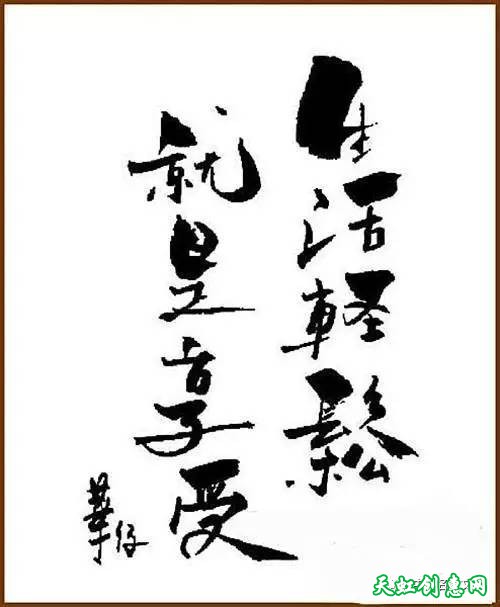 生活軽鬆
就是享受
華仔
天虹创意网